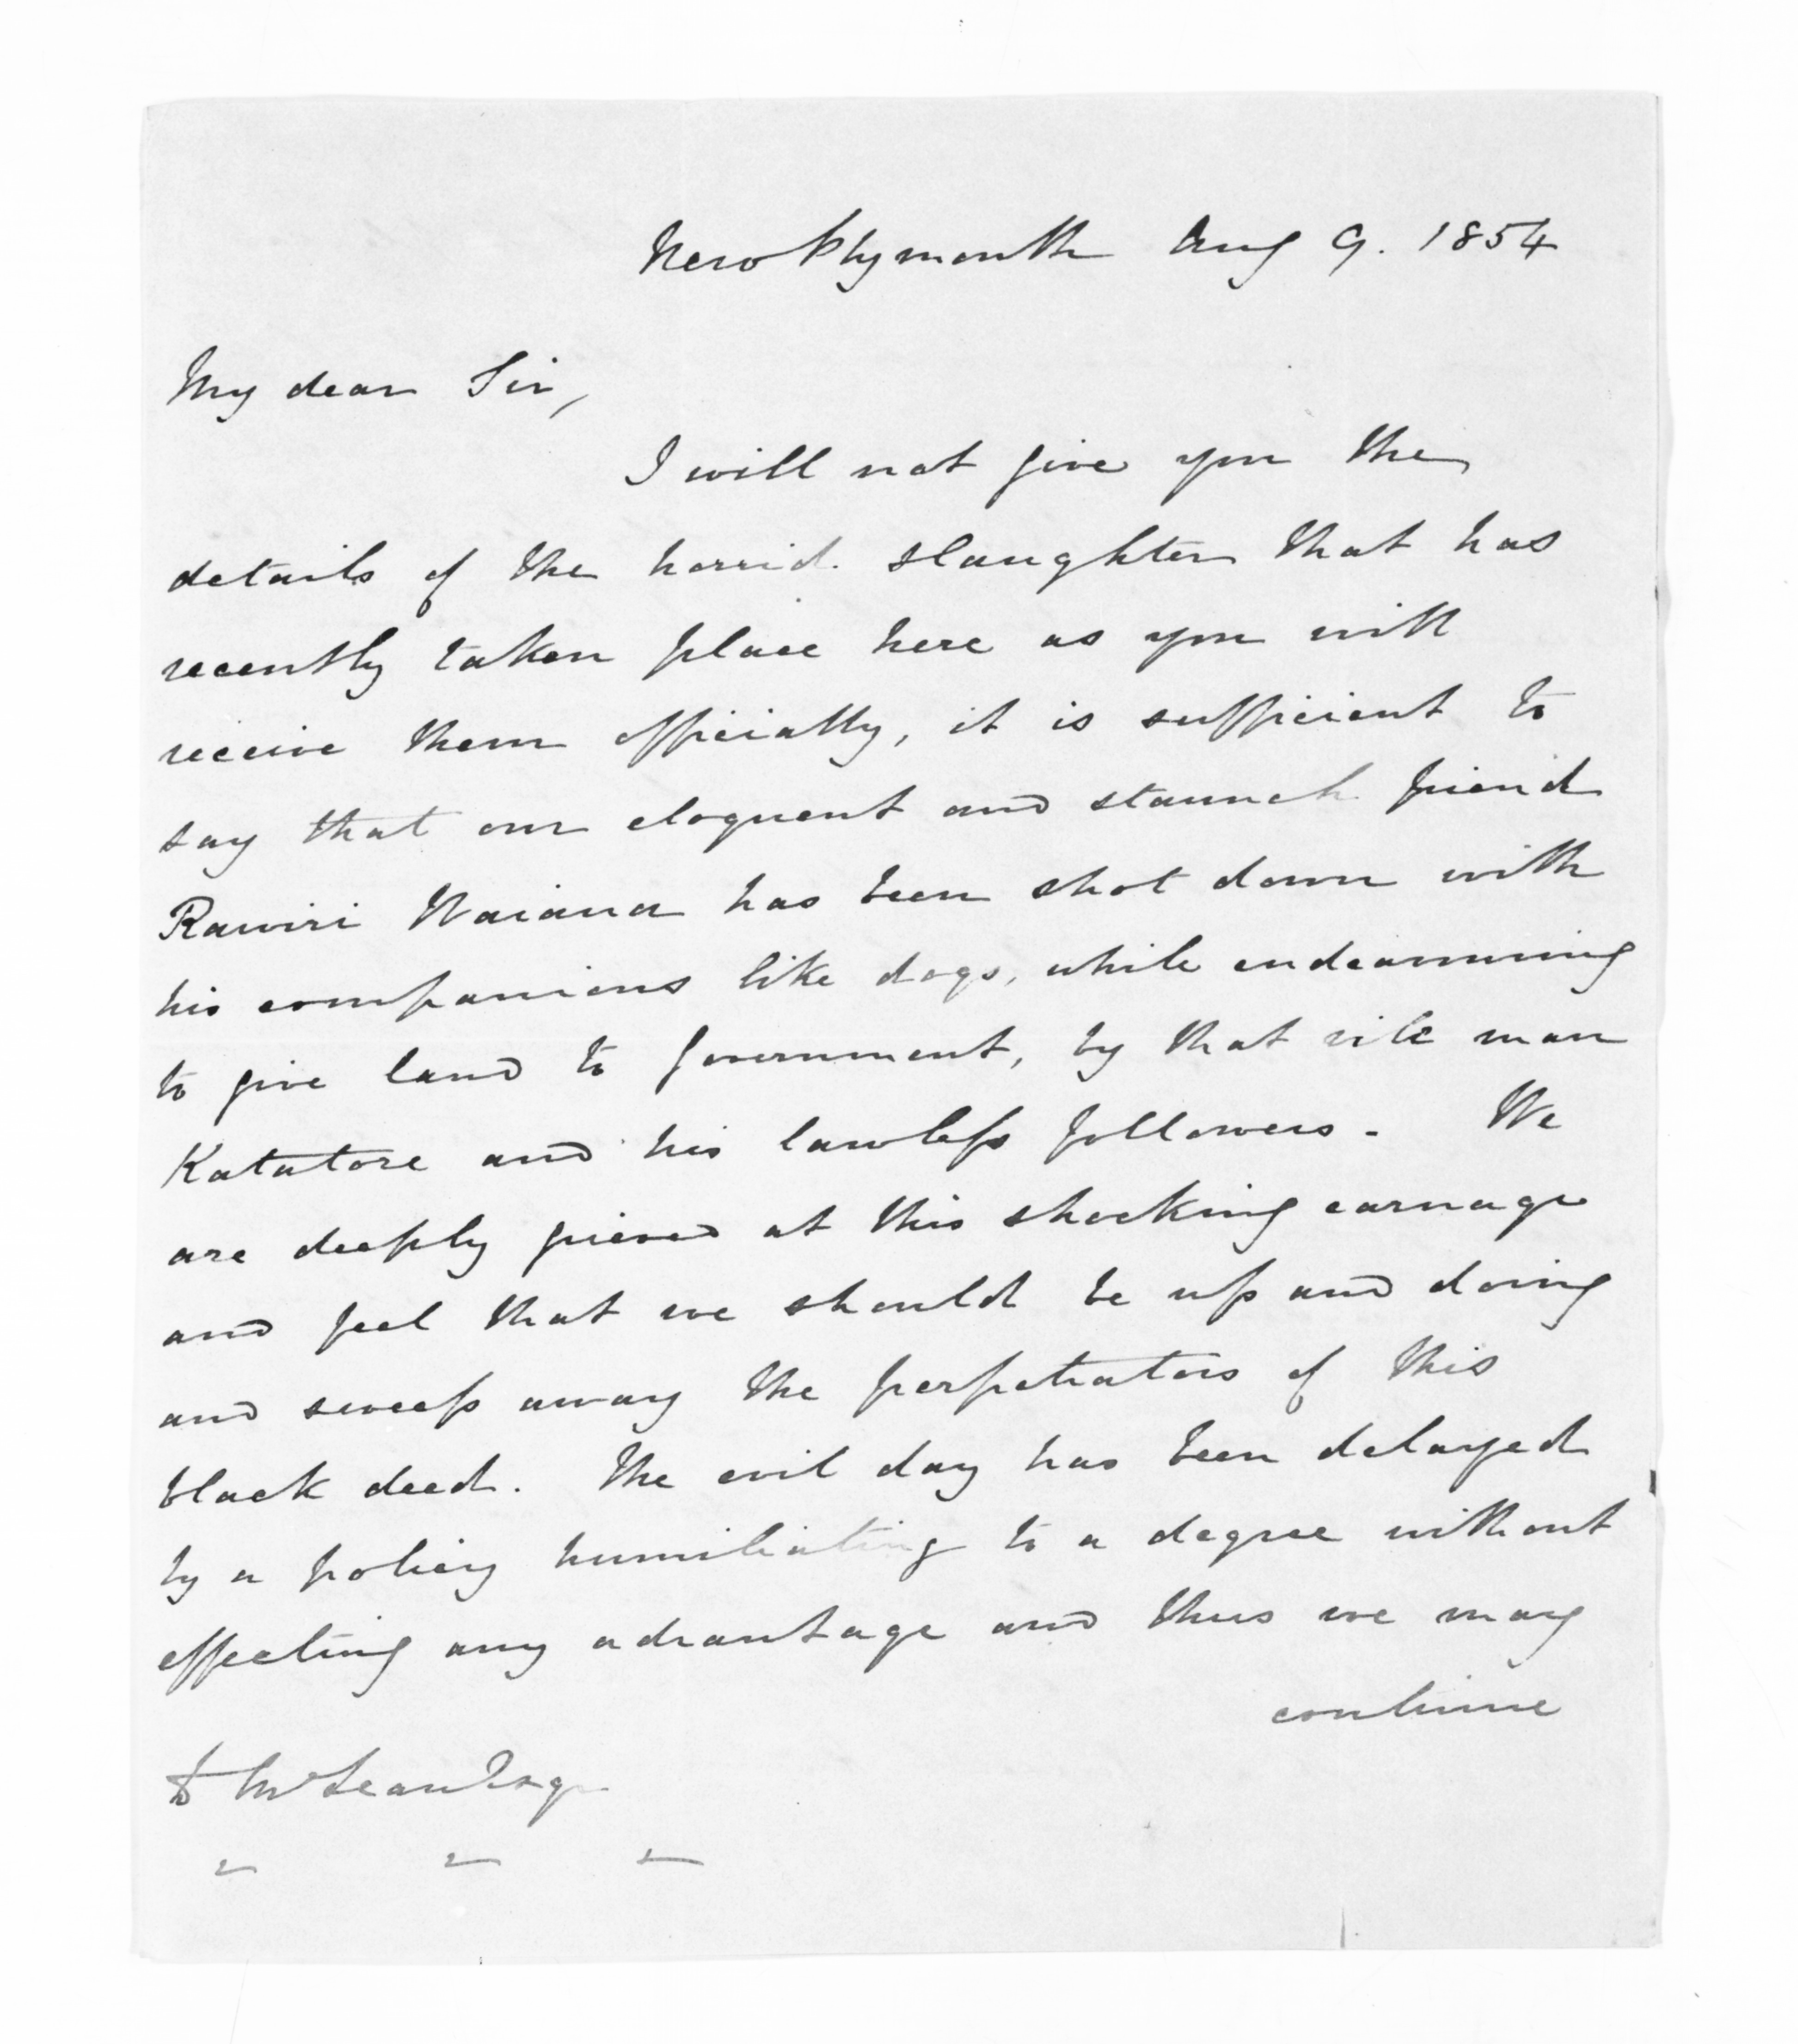 New Plymouth Aug 9. 1854
My dear Sir,
I will not give you the
details of the horrid slaughter that has
recently taken place here as you will
receive them officially, it is sufficient to
say that our eloquent and staunch friend
Rawiri Waiaua has been shot down with
his companions like dogs, while endeavouring
to give land to Government, by that vile man
Katatore and his lawless followers. We
are deeply grieved at this shocking carnage
and feel that we should be up and doing
and sweep away the perpetrators of this
black deed. The evil day has been delayed
by a policy humiliating to a degree without
effecting any advantage and thus we may
continue
McLean Esqr
" " "